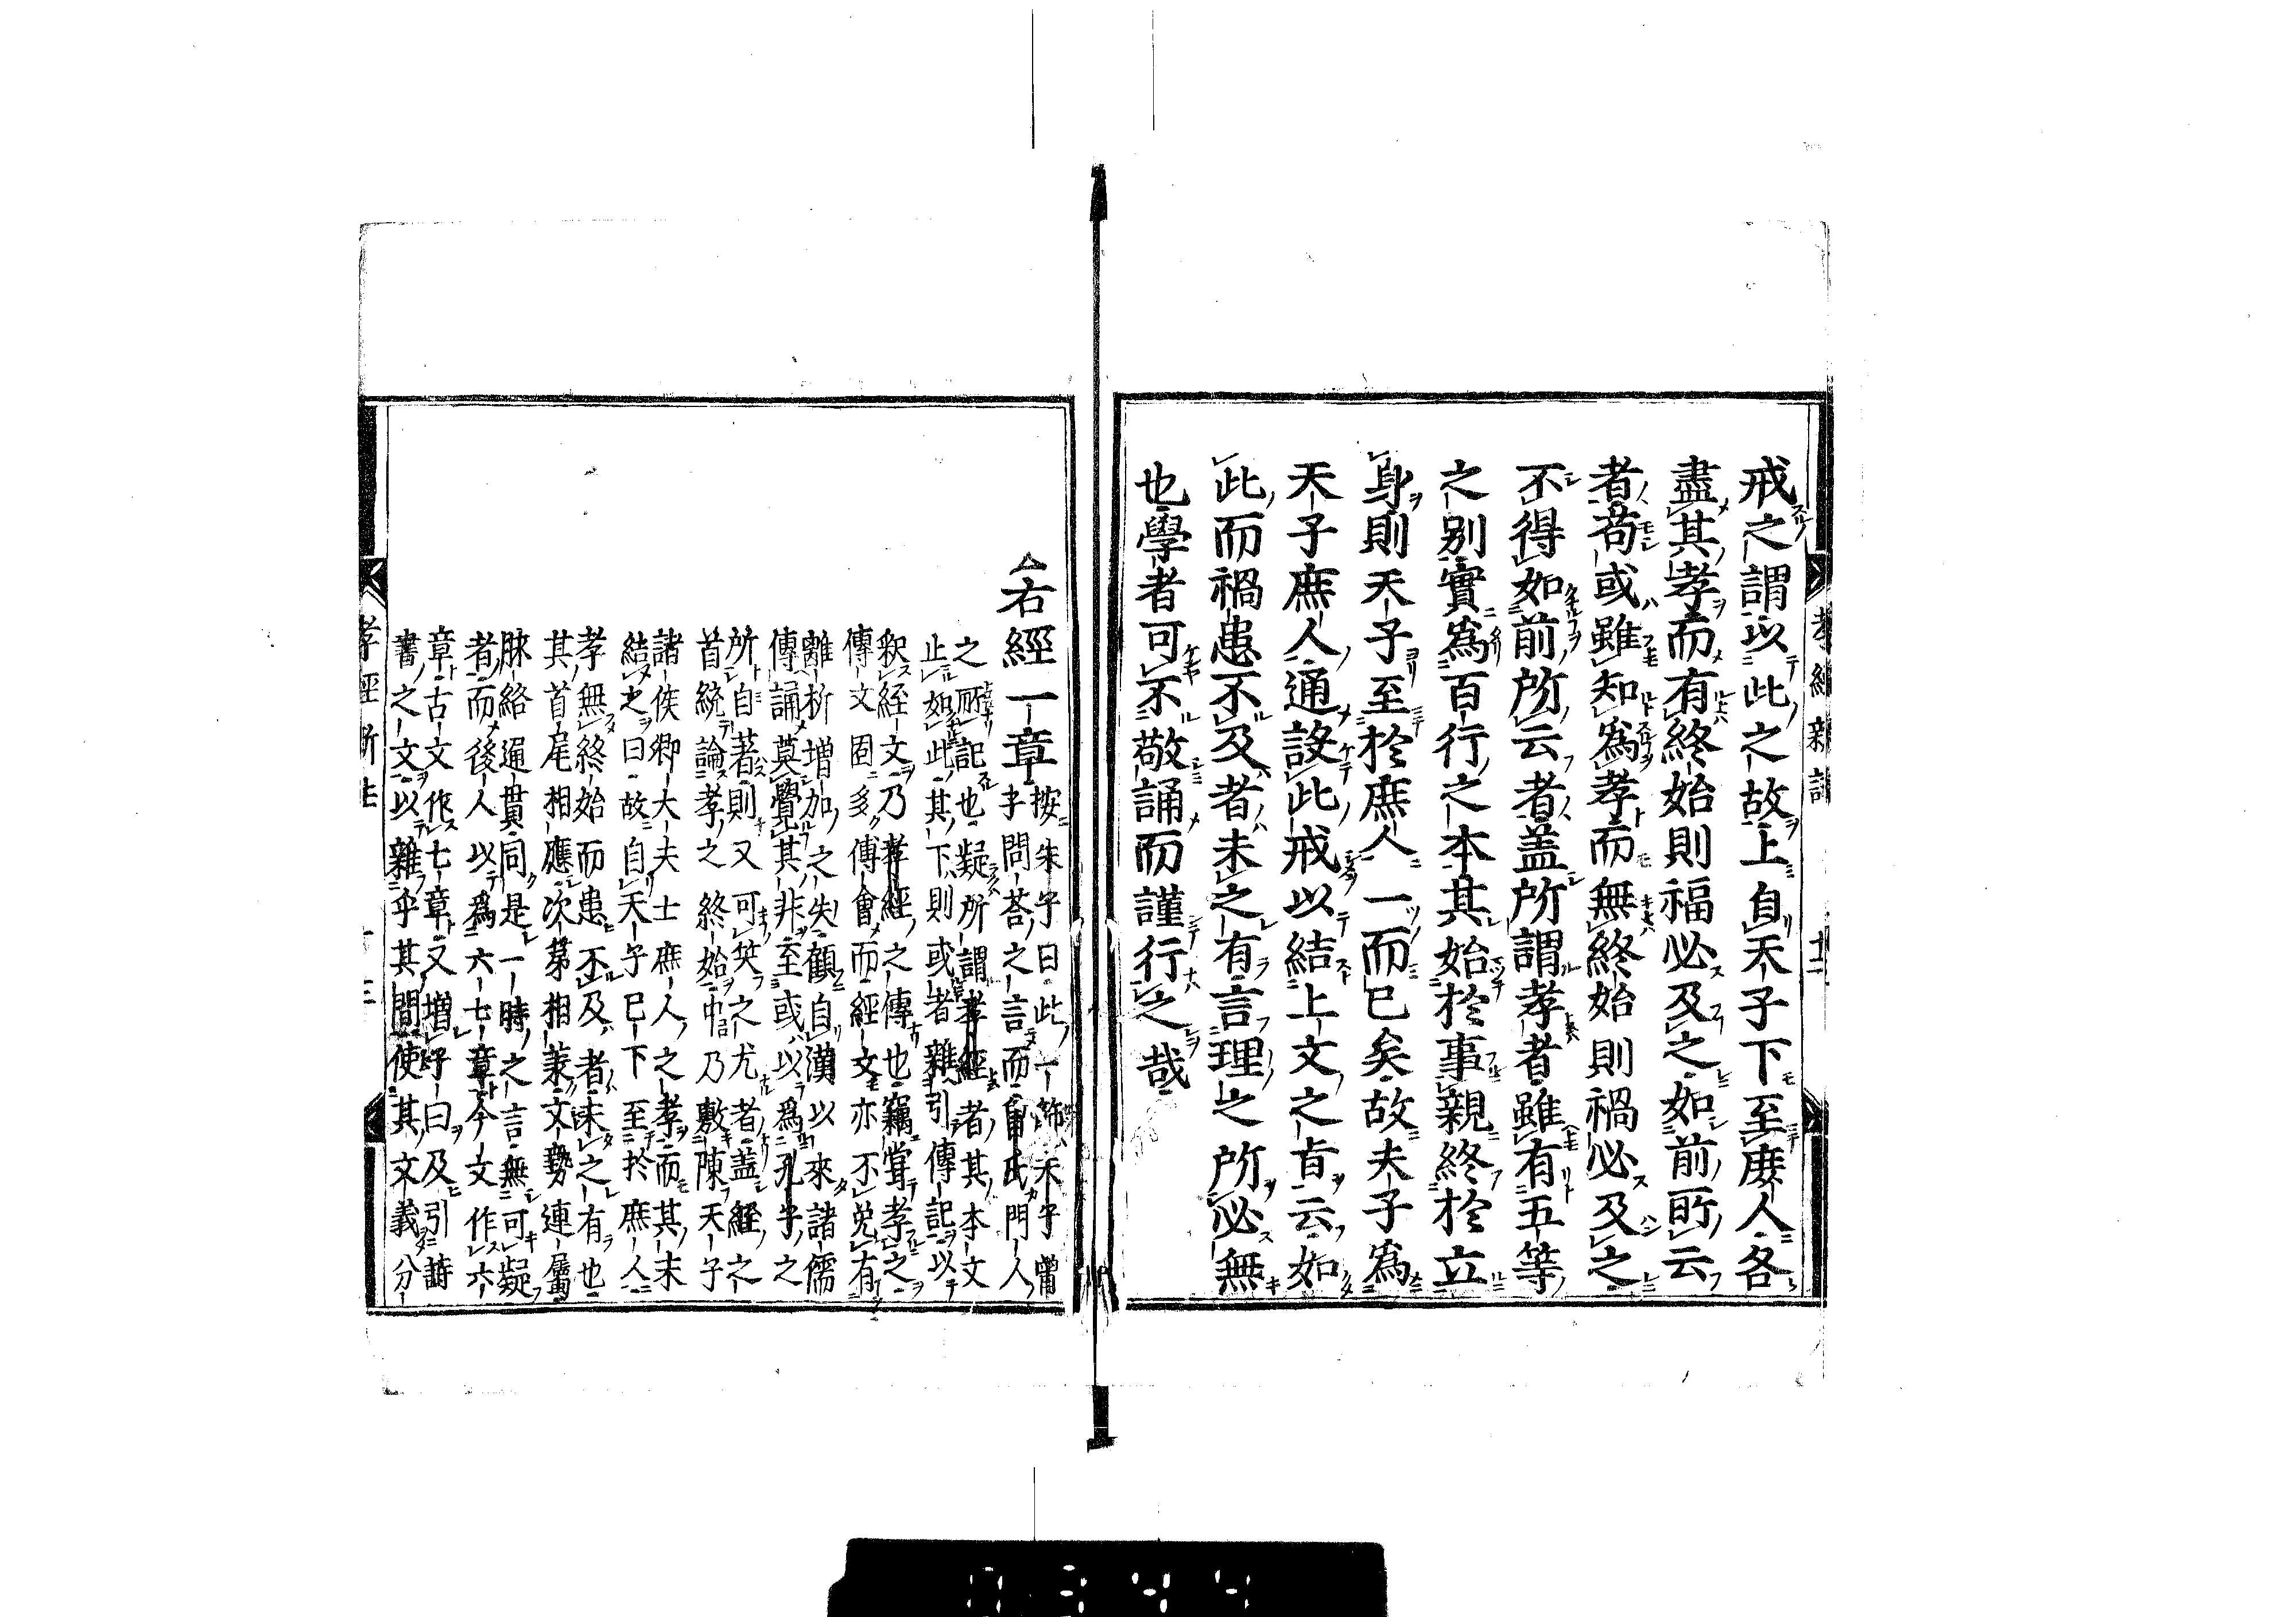 戒之謂以此之故上自天子下至庶人各
盡其孝而有終始則福必及之如前所云
者苟或雖知為孝而無終始則禍必及之
不得如前所云者盖所謂孝者雖有五等
之別實為百行之本其始於事親終於立
身則天子至於庶人一而已矣故夫子為
天子庶人通設此戒以結上文之旨云如
此而禍患不及者未之有言理之所必無
也學者可不敬誦而謹行之哉
右經一章
按朱子曰此一節夫子曾
子問荅之言而曾氏門人
之所記也疑所謂孝經者其本文
止如此其下則或者雜引傳記以
釈経文乃孝經之傳也竊嘗孝之
傳文固多傅會而經文亦不免有
離析增加之失顧自漢以來諸儒
傳誦莫覺其非至或以為孔子之
所自著則又可笑之尤者盖經之
首統論孝之終始中乃敷陳天子
諸侯卿大夫士庶人之孝而其末
結之曰故自天子已下至於庶人
孝無終始而患不及者未之有也
其首尾相應次第相承文勢連屬
脉絡通貫同是一時之言無可疑
者而後人以為六七章今文作六
章古文作七章又增子曰及引詩
書之文以雜乎其間使其文義分
孝經新註